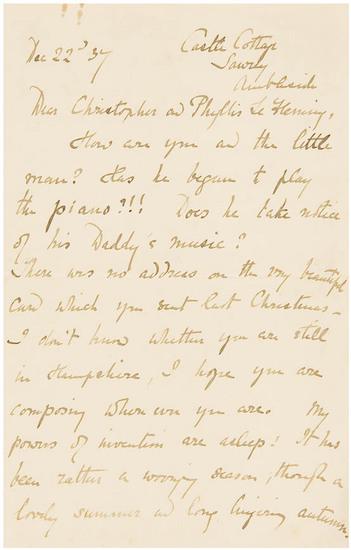 Dec 22nd 37
Castle Cottage
Sawrey
Ambleside
Dear Christopher and Phyllis Le Fleming,
How are you and the little
man? Has he begun to play
the piano?!!! Does he take notice
of his Daddy's music?
There was no address on the very beautiful
card which you sent last Christmas–
I don't know whether you are still
in Hampshire, I hope you are
composing wherever you are. My
powers of invention are asleep! It has
been rather a worrying season, though a
lovely summer and long lingering autumn.